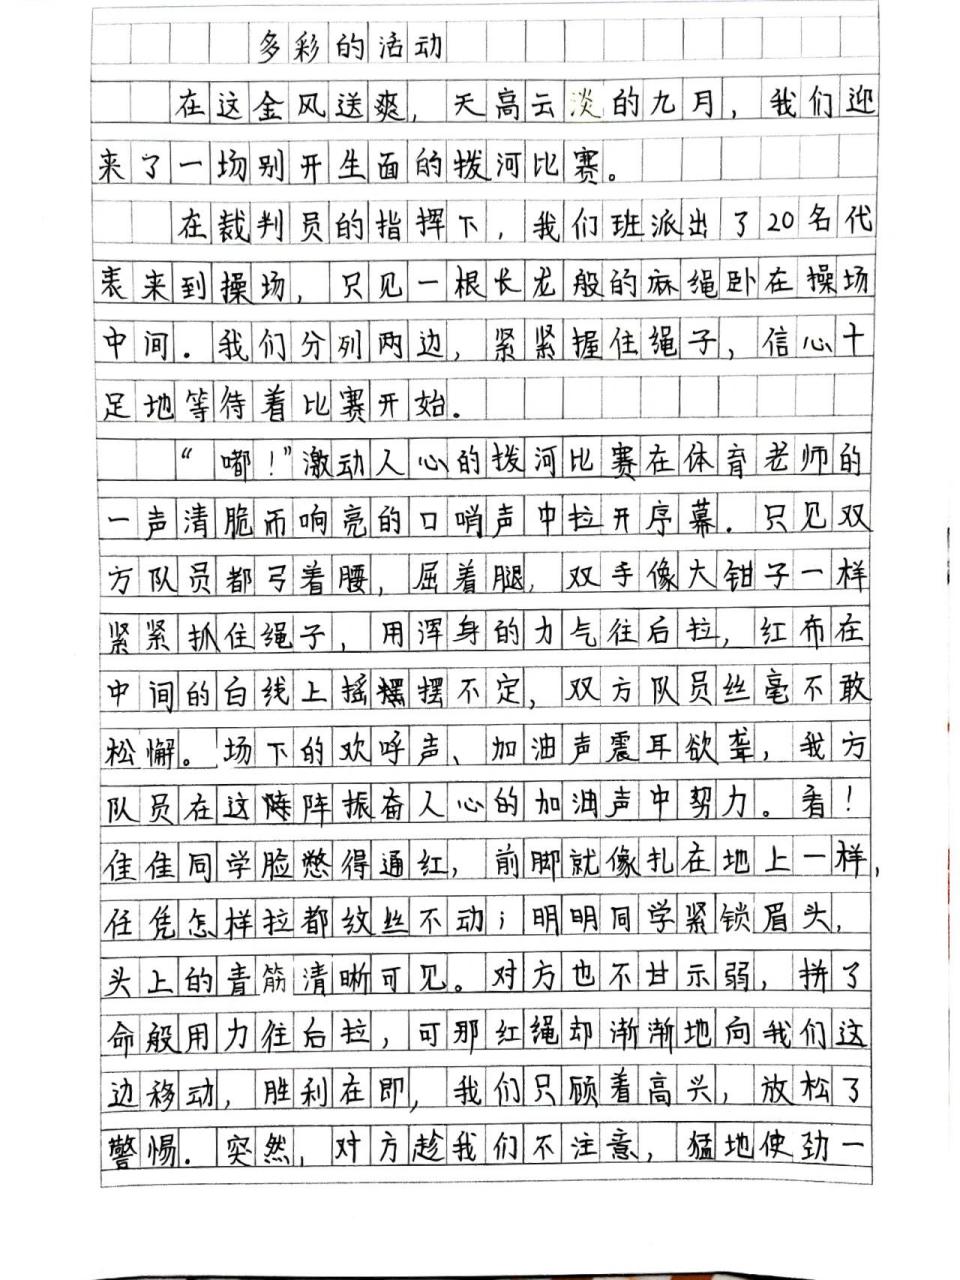 多彩的活动
在这金风送爽，天高云淡的九月，我们迎
来了一场别开生面的拨河比赛。
在裁判员的指挥下，我们班派出了20名代
表来到操场，只见一根长龙般的麻绳卧在操场
中间．我们分列两边，紧紧握住绳子，信心十
足地等待着比赛开始．
“嘟！”激动人心的拨河比赛在体育老师的
一声清脆而响亮的口哨声中拉开序幕．只见双
方队员都弓着腰，屈着腿，双手像大钳子一样
紧紧抓住绳子，用浑身的力气往后拉，红布在
中间的白线上摇摆不定，双方队员丝毫不敢
松懈。场下的欢呼声、加油声震耳欲聋，我方
队员在这阵阵振奋人心的加油声中努力。看！
佳佳同学脸憋得通红，前脚就像扎在地上一样，
任凭怎样拉都纹丝不动；明明同学紧锁眉头，
头上的青筋清晰可见。对方也不甘示弱，拼了
命般用力往后拉，可那红绳却渐渐地向我们这
边移动，胜利在即，我们只顾着高兴，放松了
警惕．突然，对方趁我们不注意，猛地使劲一